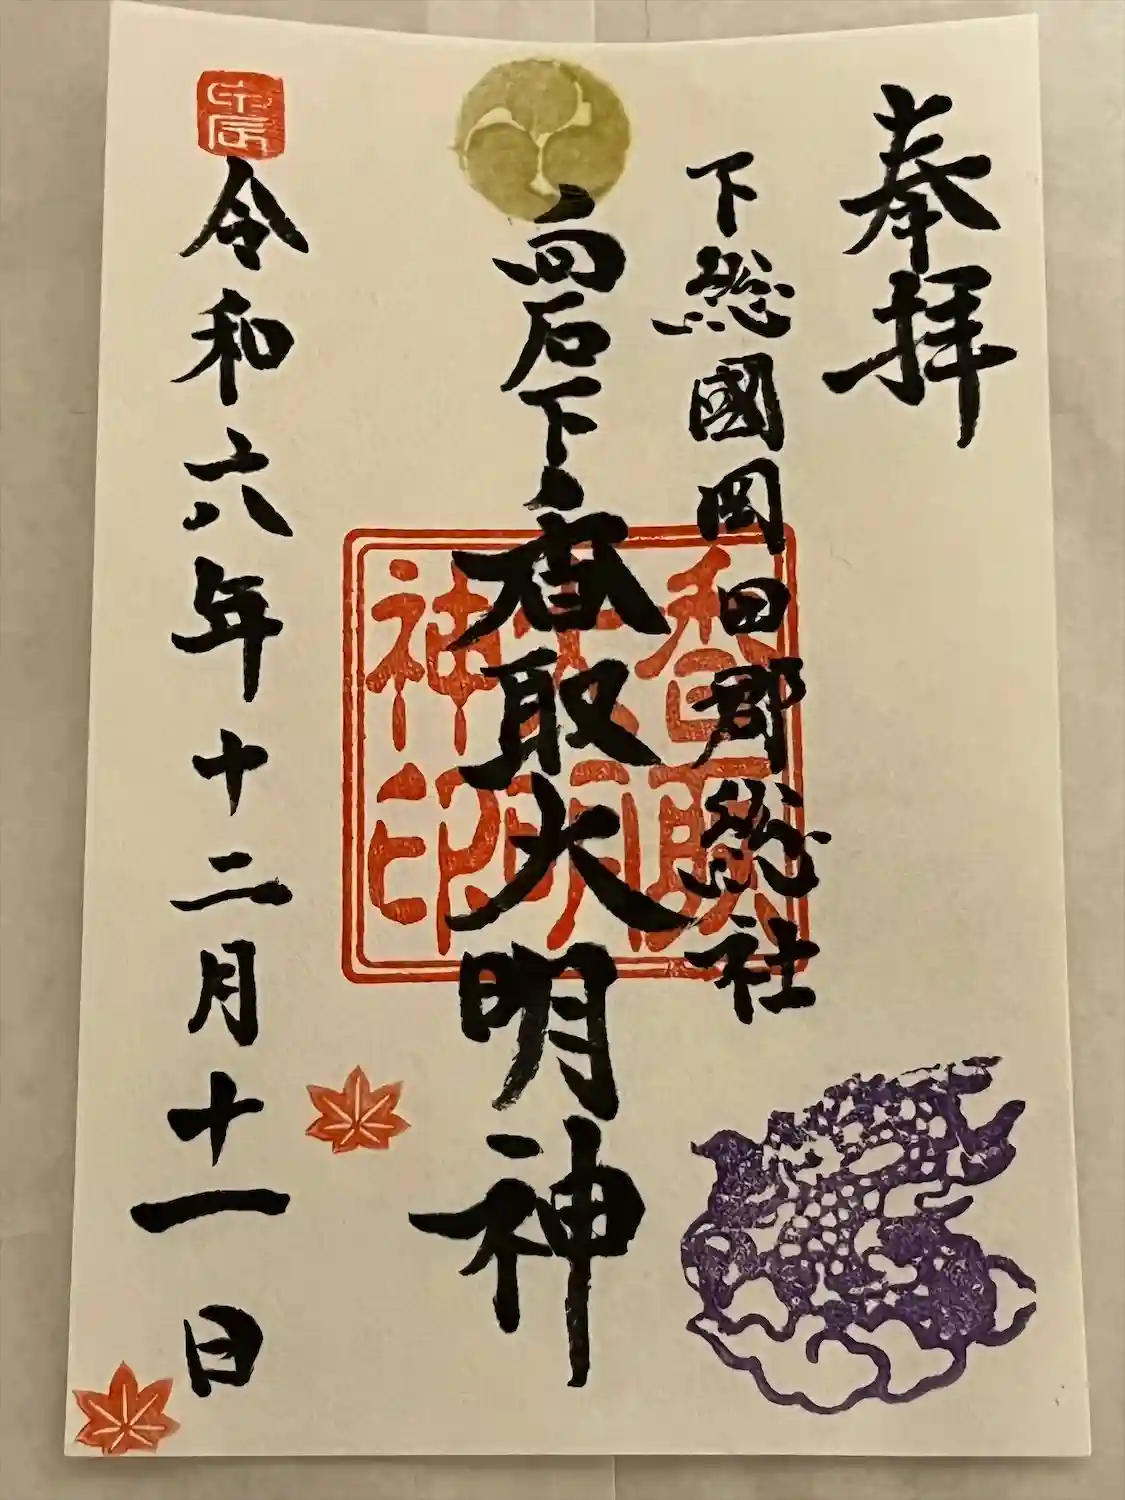 奉拝
下総國岡田郡総社
向石下
香取大明神
香取大明神印
甲辰
令和六年十二月十一日